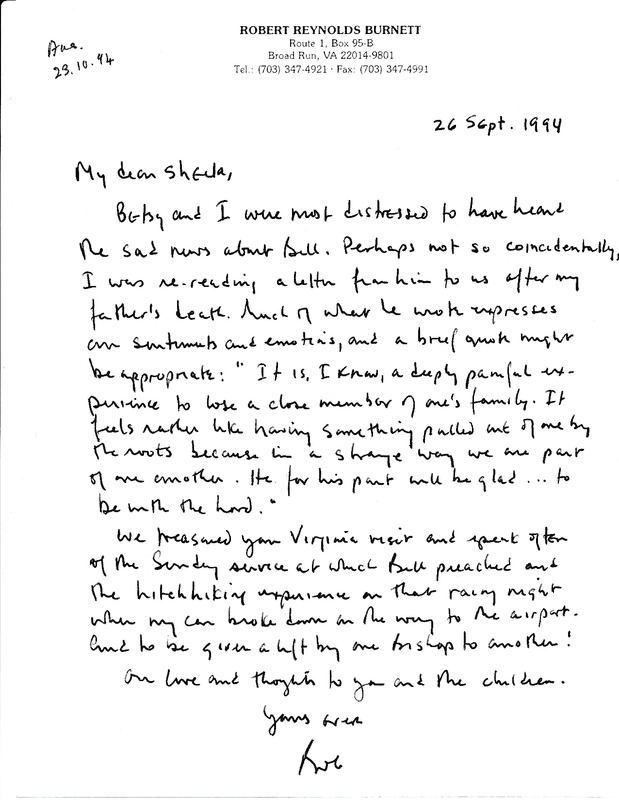 ROBERT REYNOLDS BURNETT
Route 1, Box 95-B
Broad Run, VA 22014-9801
Tel.: (703) 347-4921 · Fax: (703) 347-4991
Ans.
23.10.94
26 Sept. 1994
My dear Sheila,
Betsy and I were most distressed to have heard
the sad news about Bill. Perhaps not so coincidentally,
I was re-reading a letter from him to us after my
father's death. Much of what he wrote expresses
our sentiments and emotions, and a brief quote might
be appropriate: "It is, I know, a deeply painful ex-
perience to lose a close member of one's family. It
feels rather like having something pulled out of one by
the roots because in a strange way we are part
of one another. He for his part will be glad ... to
be with the Lord."
We treasured your Virginia visit and speak often
of the Sunday service at which Bill preached and
the hitchhiking experience on that rainy night
when my car broke down on the way to the airport.
And to be given a lift by one Bishop to another!
Our love and thoghts to you and the children.
Yours ever
Bob